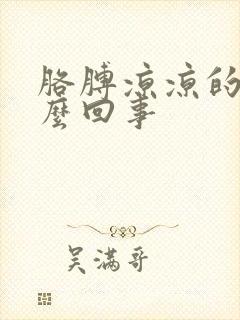 胳膊凉凉的
麼回事
吴满哥